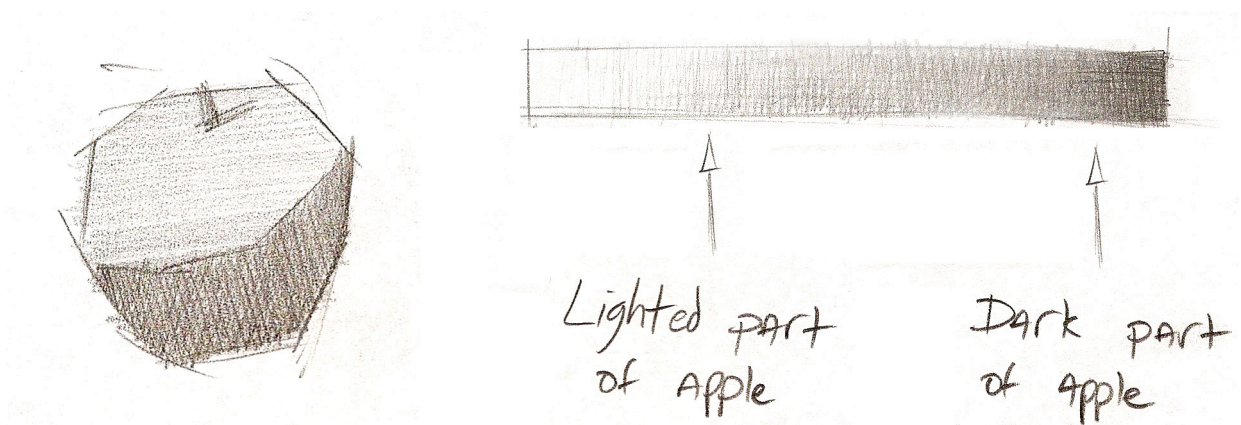 Lighted part
of Apple
Dark part
of Apple